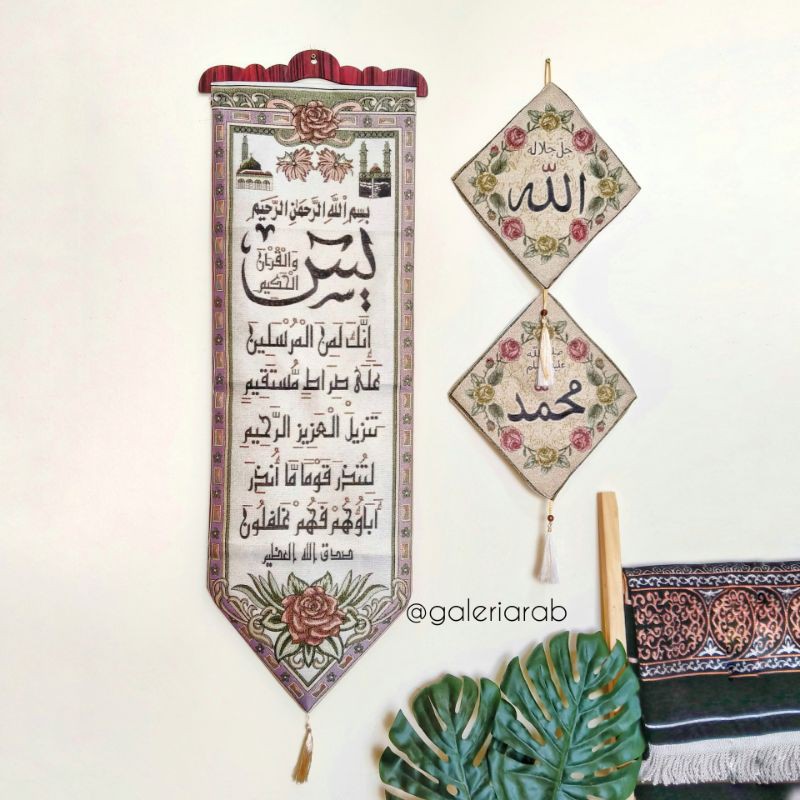 بِسْمِ اللَّهِ الرَّحْمَنِ الرَّحِيمِ
يسٓ
وَالْقُرْآنِ
الْحَكِيمِ
إِنَّكَ لَمِنَ الْمُرْسَلِينَ
عَلَى صِرَاطٍ مُّسْتَقِيمٍ
تَنزِيلَ الْعَزِيزِ الرَّحِيمِ
لِتُنذِرَ قَوْمًا مَّا أُنذِرَ
آبَاؤُهُمْ فَهُمْ غَافِلُونَ
صدق الله العظيم
جل جلاله
اللّٰه
صلى الله
عليه وسلم
محمّد
@galeriarab